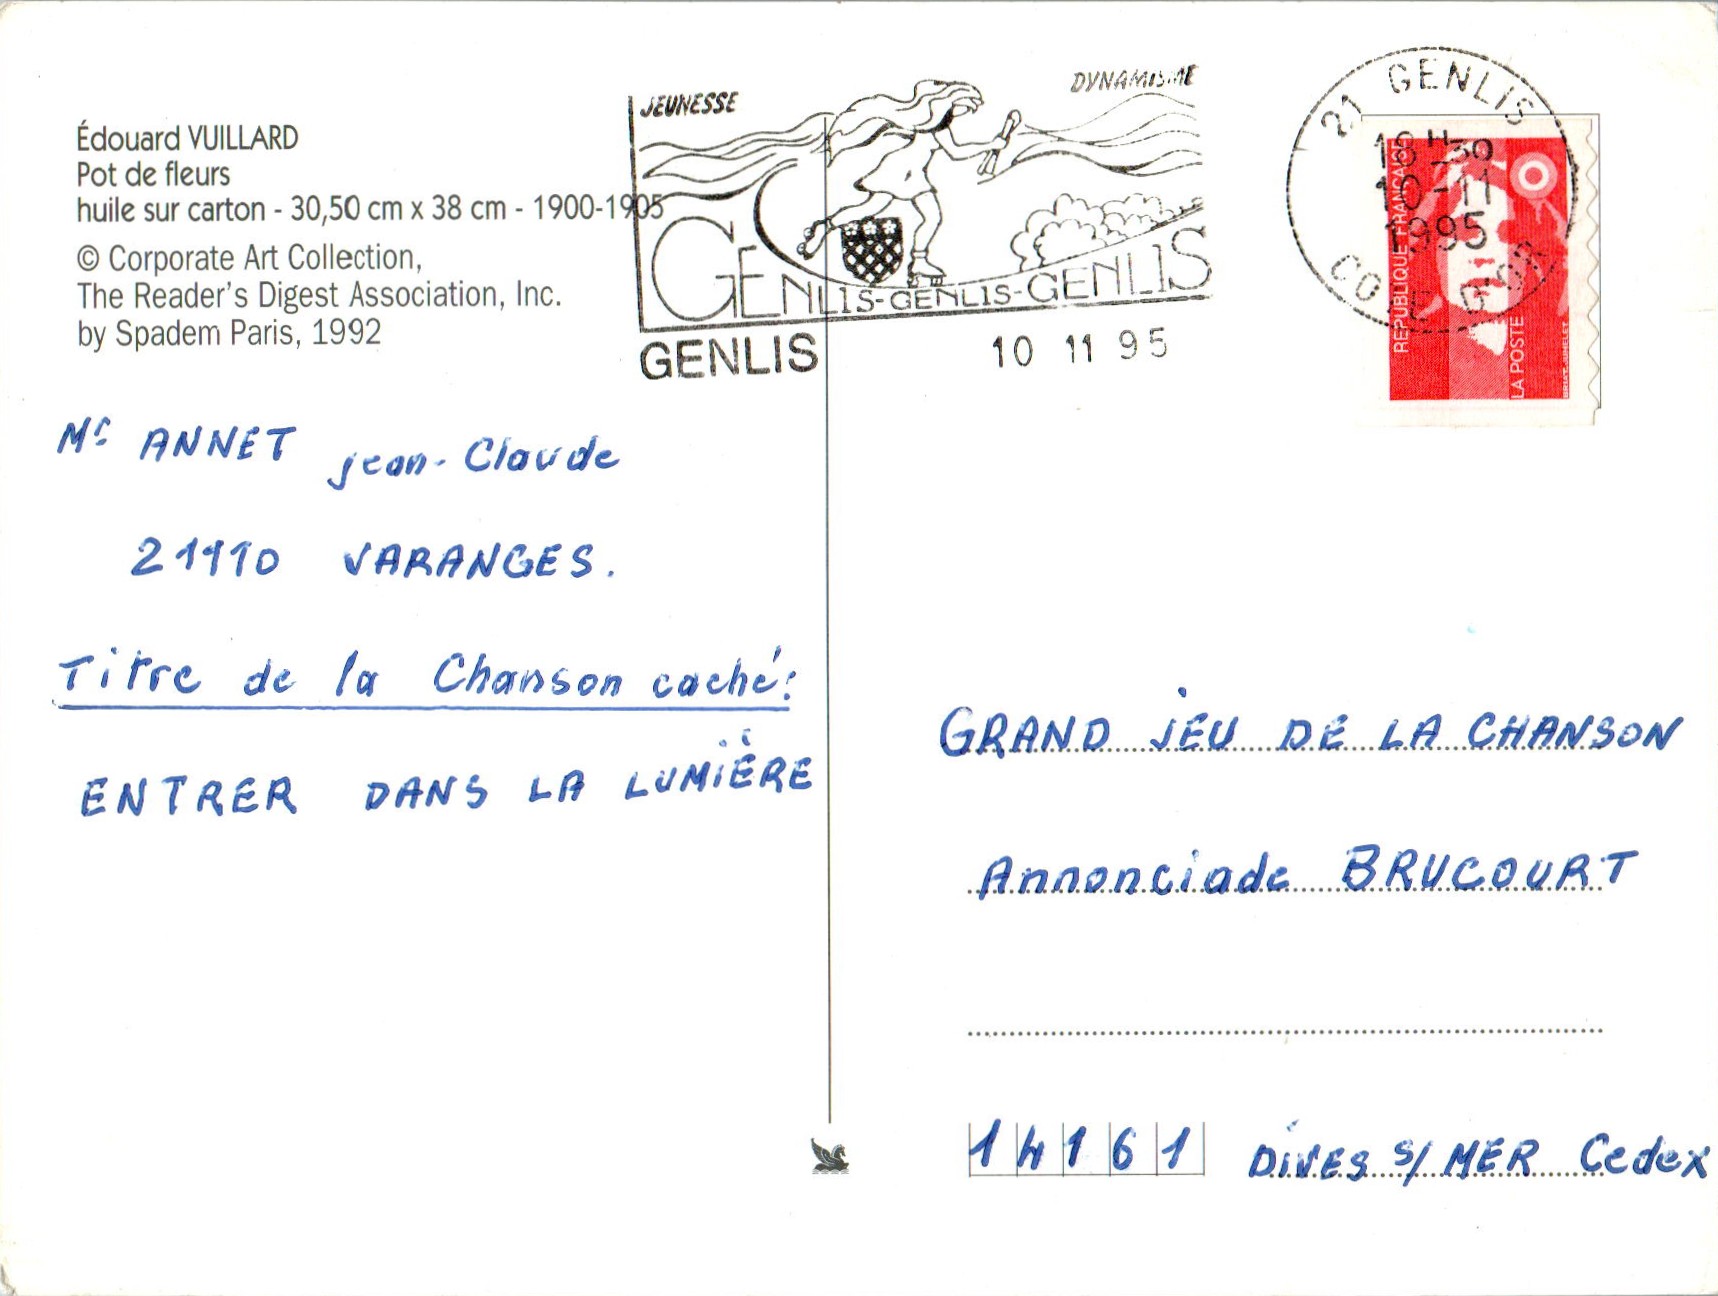 Édouard VUILLARD
Pot de fleurs
huile sur carton - 30,50 cm x 38 cm - 1900-1905
© Corporate Art Collection,
The Reader's Digest Association, Inc.
by Spadem Paris, 1992
JEUNESSE
DYNAMISME
GENLIS-GENLIS-GENLIS
GENLIS
10 11 95
21 GENLIS
18H30
10-11
1995
COTE D'OR
REPUBLIQUE FRANÇAISE
LA POSTE
Mr ANNET jean-Claude
21110 VARANGES.
Titre de la Chanson caché:
ENTRER DANS LA LUMIÈRE
GRAND JEU DE LA CHANSON
Annonciade BRUCOURT
14161 DIVES S/MER Cedex